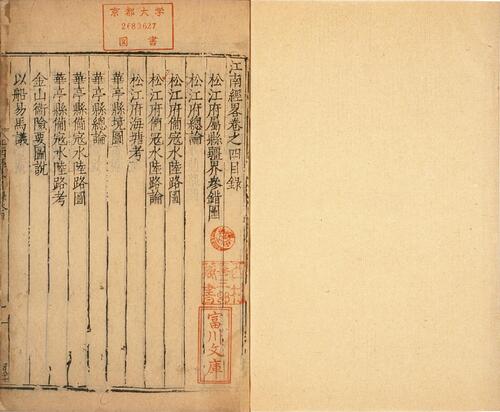 京都大学
2683627
図書
江南經畧卷之四目録
松江府屬縣疆界參錯圖
松江府總論
松江府備寇水陸路圖
松江府備寇水陸路論
松江府海塘考
華亭縣境圖
華亭縣總論
華亭縣備寇水陸路圖
華亭縣備寇水陸路考
金山衛險要圖說
以船易馬議
富川文庫